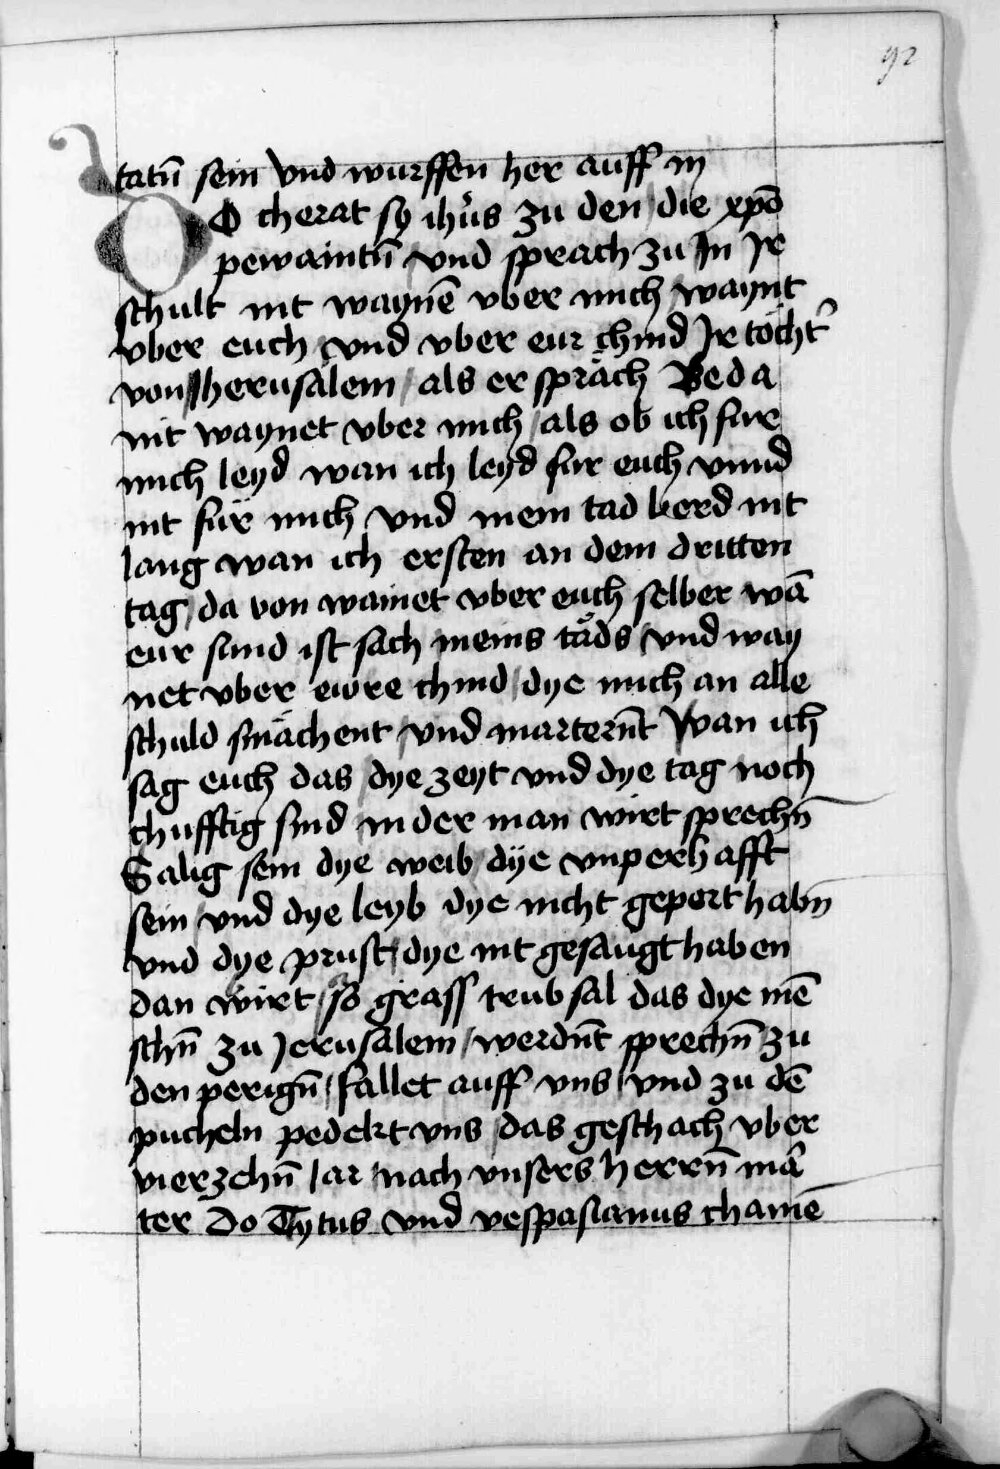 92
tatn̄ sein vnd wurffen her auff in
DO cherat sy ih̄us zu den / die xp̄m
pewaintn̄ / vnd sprach zu In Ir
schult nit waynē vber mich / waynt
vber euch / vnd vber eur chind Ir töcht'
von Iherusalem / als er sprach Beda
nit waynet vber mich / als ob ich fur
mich leyd wan ich leyd fur euch vnnd
nit für mich / vnd mein tad berd nit
lang wan ich ersten an dem dritten
tag / da von wainet vber euch selber wā
eur sund ist sach meins tads / vnd way
net vber ewre chind / dye mich an alle
schuld smächent / vnd marternt Wan ich
sag euch das / dye zeyt vnd dye tag noch
chufftig sind in der man wirt sprechn̄
Salig sein dye weib / dye vnperhafft
sein / vnd dye leyb dye nicht geport habn̄
vnd dye prust / dye nit gesaugt haben
dan wirt / so grass trubsal das dye mē
schn̄ zu Jerusalem / werdn̄t sprechn̄ zu
den perign̄ / fallet auff vns / vnd zu dē
pucheln pedekt vns / das geschach vber
vierzehn̄ Iar / nach vnsers herrn̄ mā
ter Do Tytus vnd vespasianus chamē